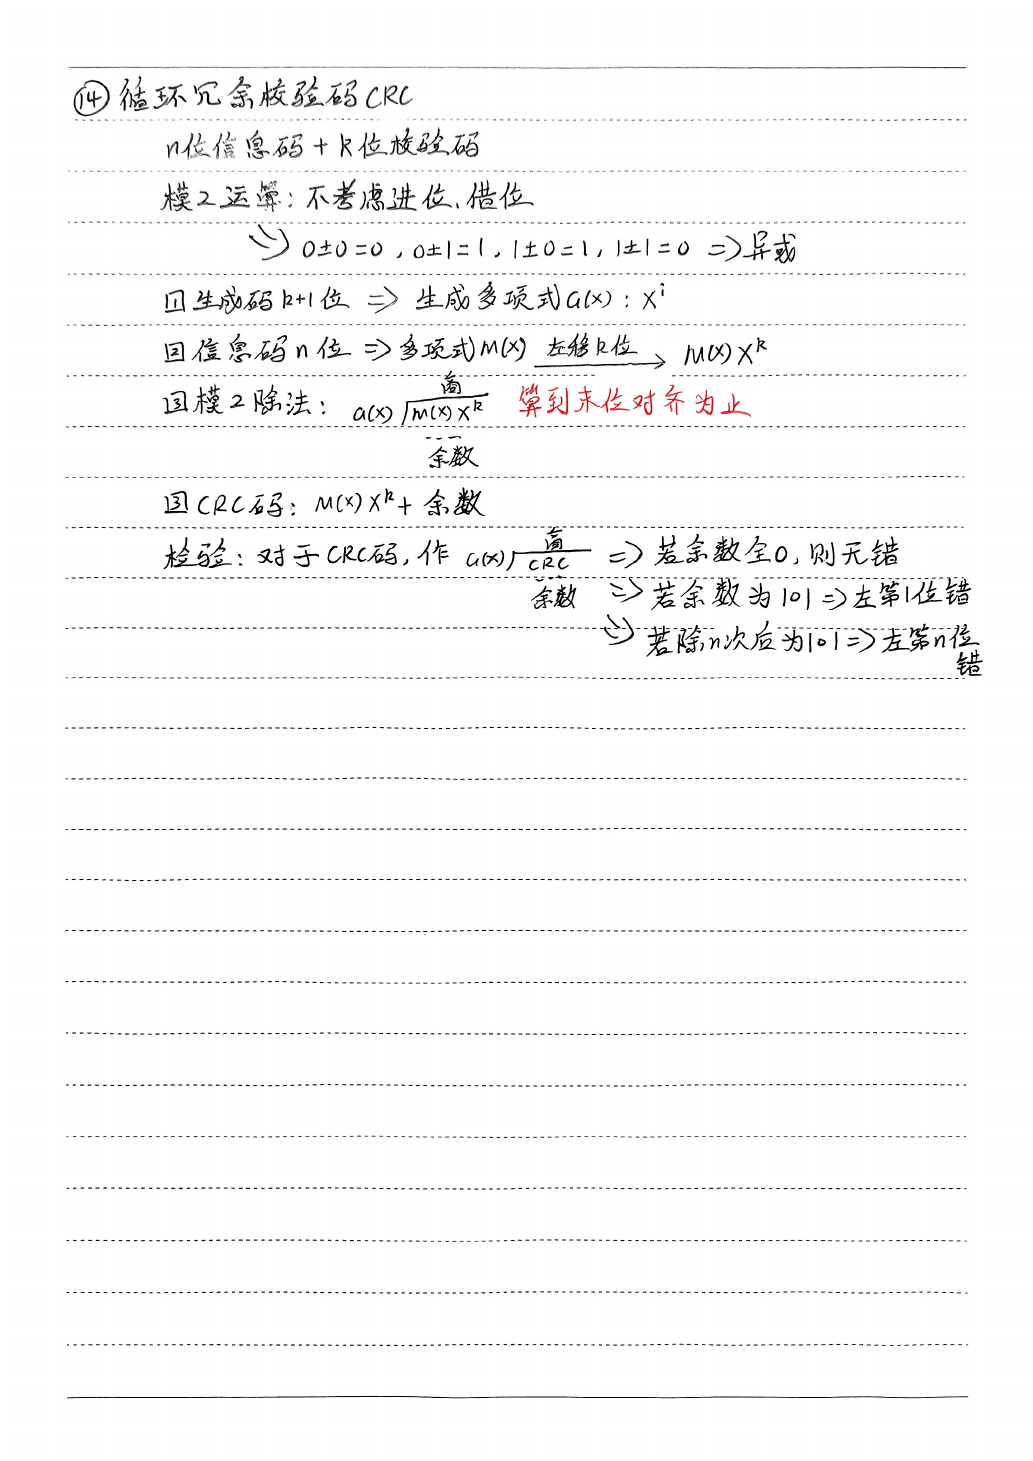 ⑭循环冗余校验码CRC
n位信息码+k位校验码
模2运算：不考虑进位、借位
=> 0±0=0，0±1=1，1±0=1，1±1=0 => 异或
1 生成码k+1位 => 生成多项式G(x)：X^i
2 信息码n位 => 多项式M(x) 左移k位→ M(x)X^k
商
3 模2除法：G(x)√M(x)X^k 算到末位对齐为止
余数
3 CRC码：M(x)X^k+余数
商
检验：对于CRC码，作 G(x)√CRC => 若余数全0，则无错
余数 => 若余数为101 => 左第1位错
=> 若除n次后为101 => 左第n位
错